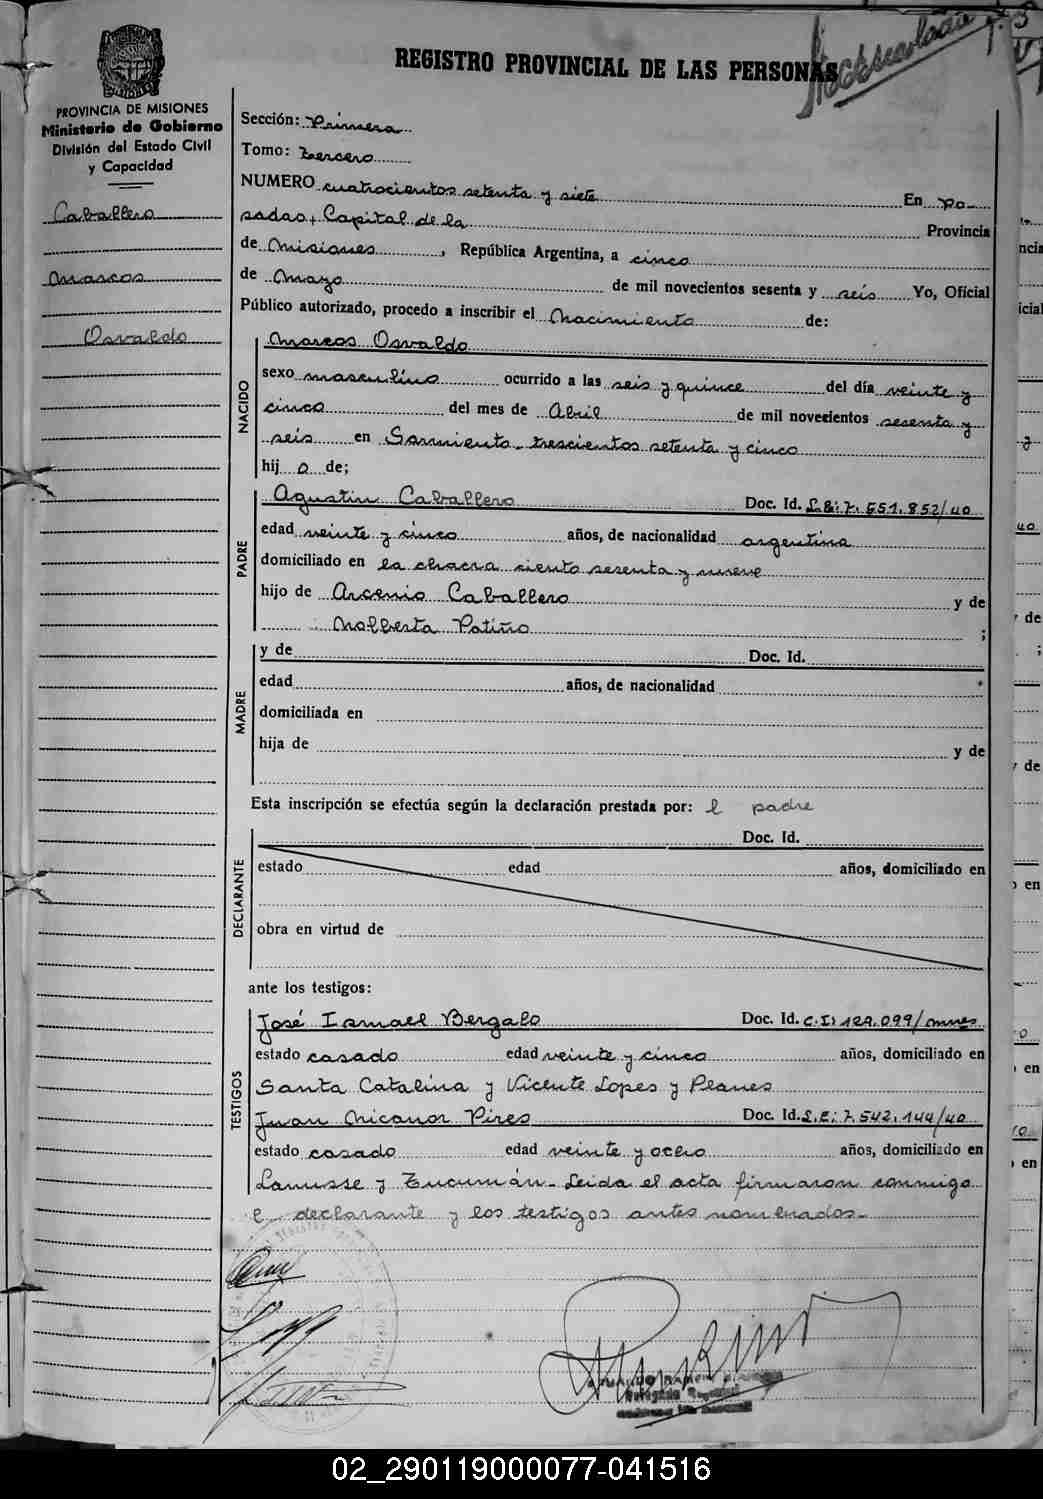 REGISTRO PROVINCIAL DE LAS PERSONAS
PROVINCIA DE MISIONES
Ministerio de Gobierno
División del Estado Civil
y Capacidad
Caballero
Marcos
Osvaldo
Sección: Primera
Tomo: Tercero
NUMERO cuatrocientos setenta y siete En Po-
sadas, Capital de la Provincia
de Misiones, República Argentina, a cinco
de Mayo de mil novecientos sesenta y seis Yo, Oficial
Público autorizado, procedo a inscribir el Nacimiento de:
NACIDO
Marcos Osvaldo
sexo masculino ocurrido a las seis y quince del día veinte y
cinco del mes de Abril de mil novecientos sesenta y
seis en Sarmiento trescientos setenta y cinco
hij o de;
PADRE
Agustin Caballero Doc. Id. L.E: 7.551.852/40
edad veinte y cinco años, de nacionalidad argentina
domiciliado en la chacra ciento sesenta y nueve
hijo de Arcenio Caballero y de
Nolberta Patiño ;
MADRE
y de Doc. Id.
edad años, de nacionalidad
domiciliada en
hija de y de
Esta inscripción se efectúa según la declaración prestada por: el padre
DECLARANTE
Doc. Id.
estado edad años, domiciliado en
obra en virtud de
ante los testigos:
TESTIGOS
José Ismael Bergalo Doc. Id. C.I: 129.099/mnes
estado casado edad veinte y cinco años, domiciliado en
Santa Catalina y Vicente Lopes y Planes
Juan Nicanor Pires Doc. Id. L.E: 7.542.144/40
estado casado edad veinte y ocho años, domiciliado en
Lanusse y Tucumán_ Leida el acta firmaron conmigo
el declarante y los testigos antes nombrados_
02_290119000077-041516